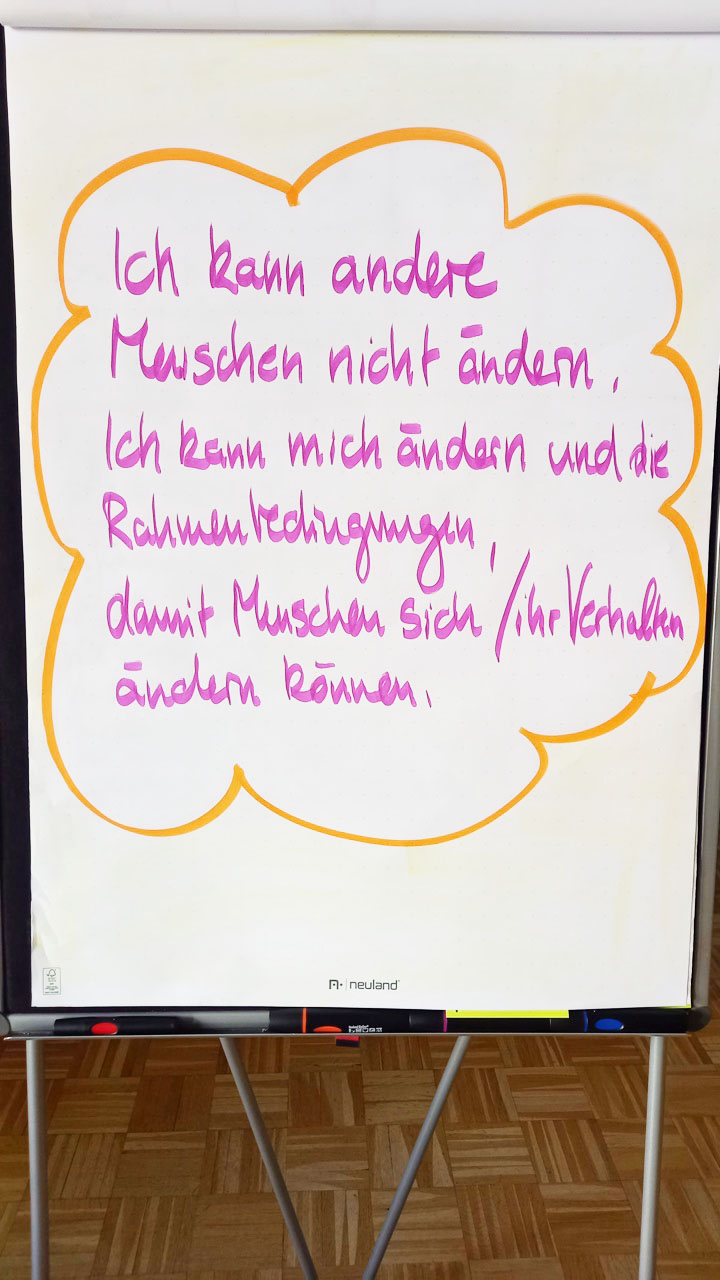 Ich kann andere
Menschen nicht ändern.
Ich kann mich ändern und die
Rahmenbedingungen,
damit Menschen sich / ihr Verhalten
ändern können.
neuland